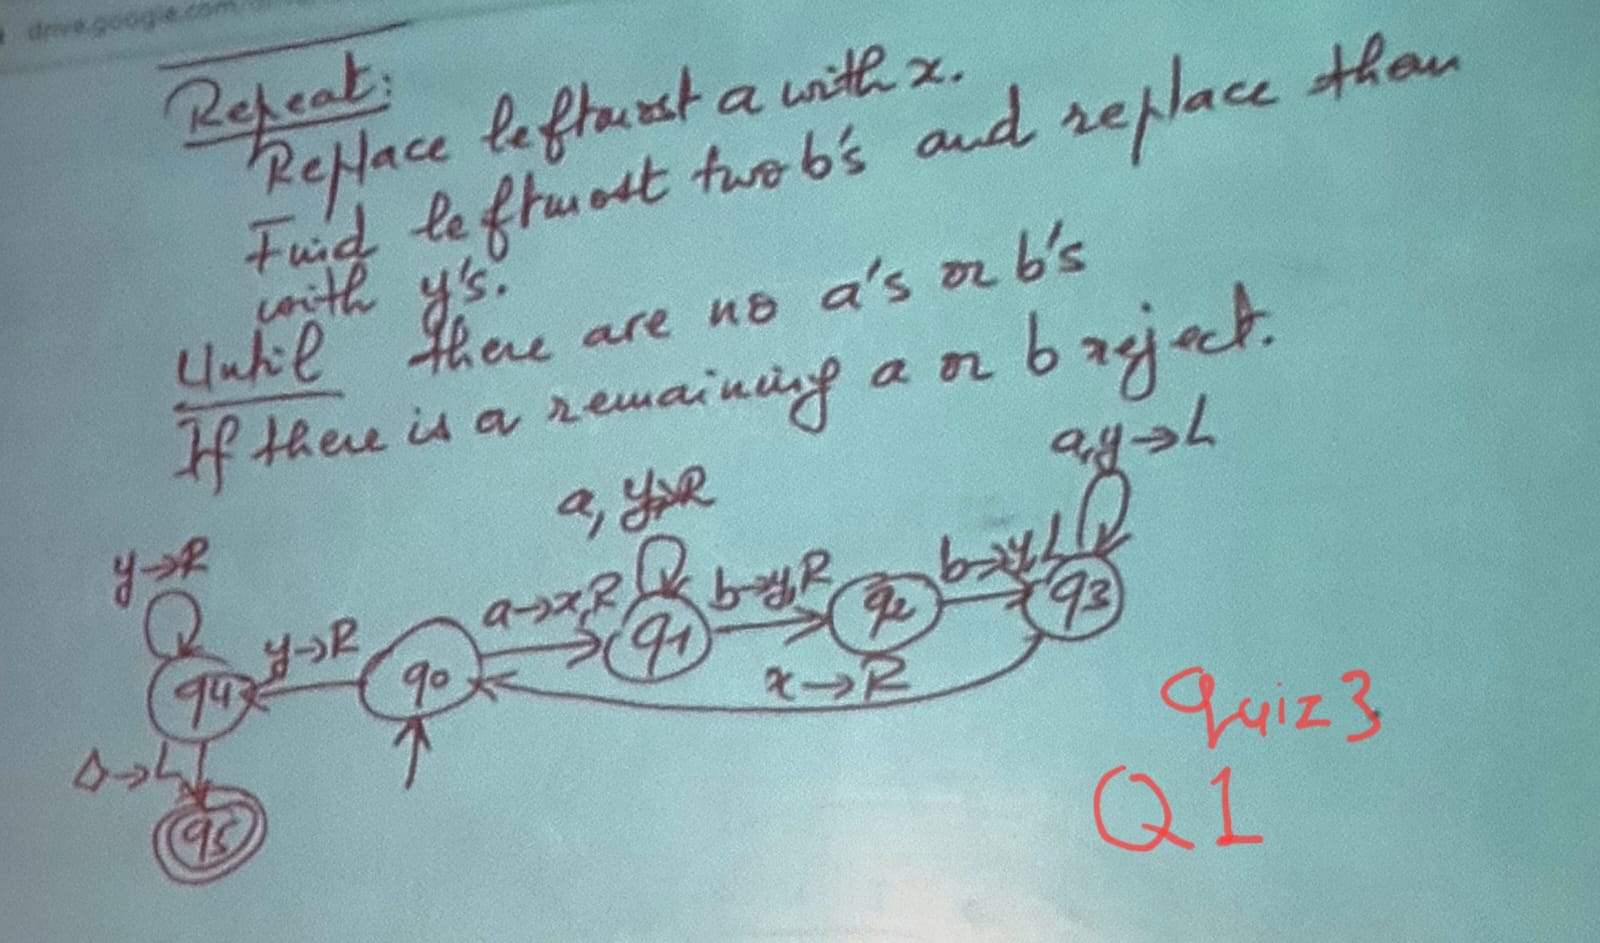 drive.google.com/
Repeat:
Replace leftmost a with x.
Find leftmost two b's and replace them
with y's.
Until there are no a's or b's
If there is a remaining a or b reject.
a,y→L
a, y→R
y→R
b→y,L
b→y,R
a→x,R
y→R
q3
q2
q1
q0
q4
x→R
Δ→L
q5
Quiz 3
Q1